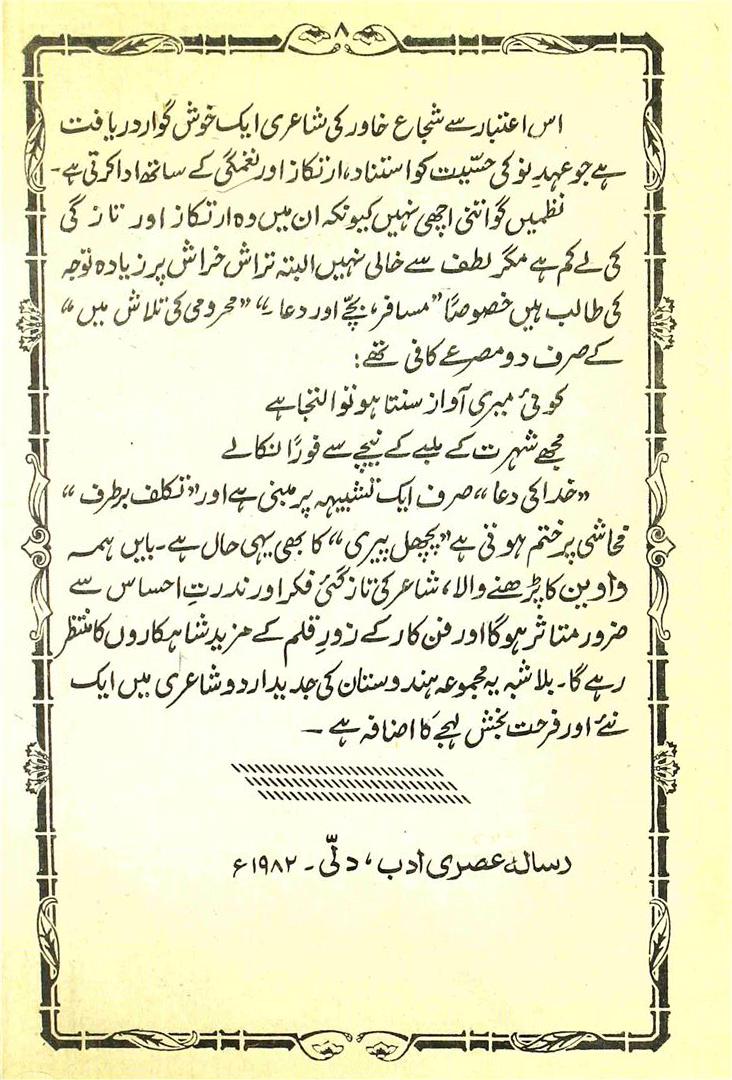 ۸
اس اعتبار سے شجاع خاور کی شاعری ایک خوش گوار دریافت
ہے جو عہدِ نو کی حسّیت کو استناد، ارتکاز اور نغمگی کے ساتھ ادا کرتی ہے۔
نظمیں گو اتنی اچھی نہیں کیونکہ ان میں وہ ارتکاز اور تازگی
کی لے کم ہے مگر لطف سے خالی نہیں البتہ تراش خراش پر زیادہ توجہ
کی طالب ہیں خصوصاً "مسافر، بچّے اور دعا۔" "محرومی کی تلاش میں"
کے صرف دو مصرعے کافی تھے:
کوئی میری آواز سنتا ہو تو التجا ہے
مجھے شہرت کے ملبے کے نیچے سے فوراً نکالے
"خدا کی دعا" صرف ایک تشبیہہ پر مبنی ہے اور "تکلف برطرف"
فحاشی پر ختم ہوتی ہے "پچھل پیری" کا بھی یہی حال ہے۔ بایں ہمہ
واوین کا پڑھنے والا، شاعر کی تازگئی فکر اور ندرتِ احساس سے
ضرور متاثر ہوگا اور فن کار کے زورِ قلم کے مزید شاہکاروں کا منتظر
رہے گا۔ بلاشبہ یہ مجموعہ ہندوستان کی جدید اردو شاعری میں ایک
نئے اور فرحت بخش لہجے کا اضافہ ہے۔
رسالہ عصری ادب، دلّی۔ ۱۹۸۲ء